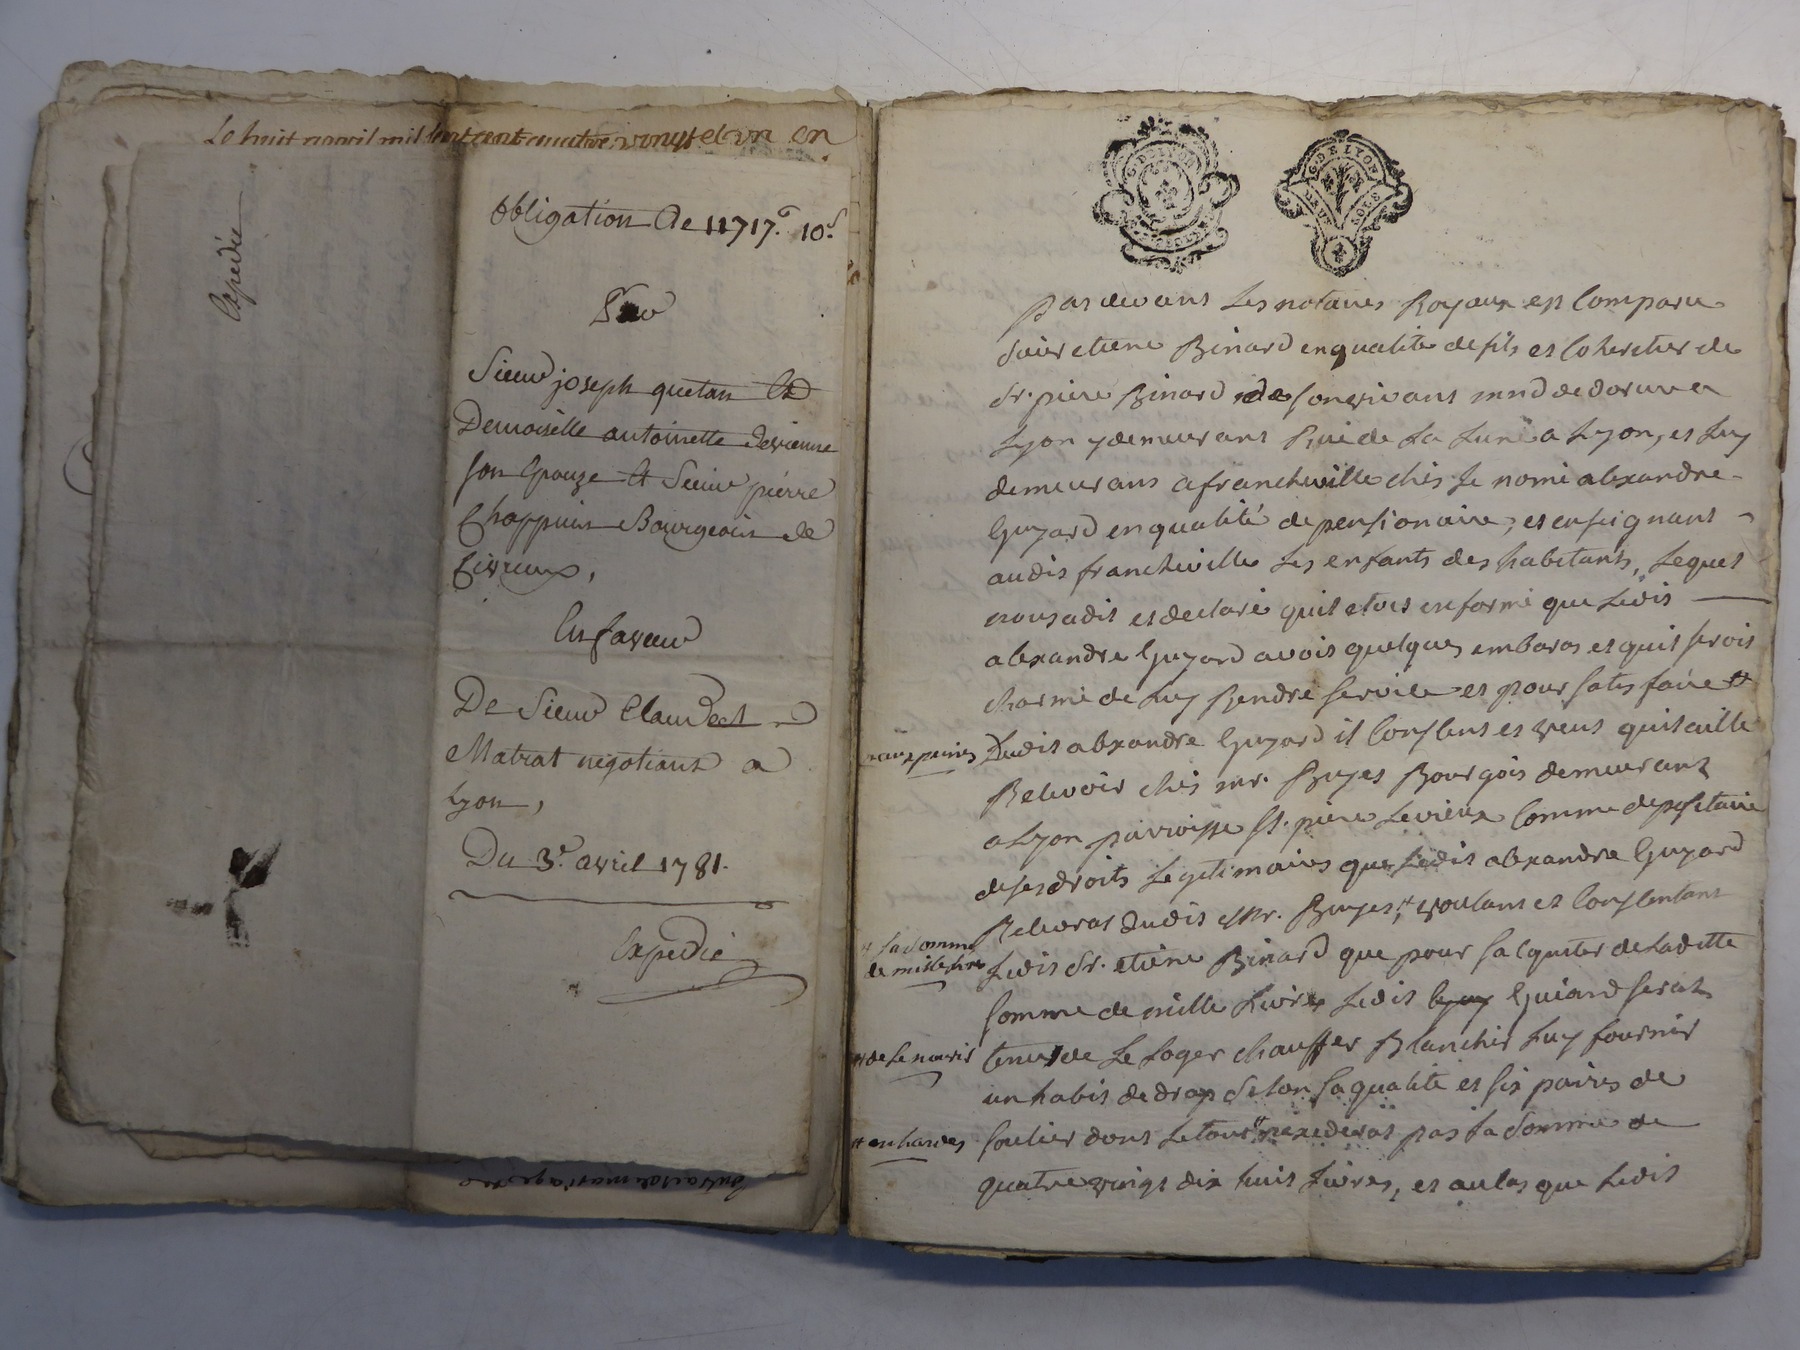 Le huit avril mil sept cent quatre vingt et un en
Expedié
Obligation de 11717.# 10.s
Par
Sieur joseph quetan Et
Demoiselle antoinette devienne
son Epouze Et Sieur piérre
Chappuis Bourgeois de
Civrieux,
En faveur
De Sieur Claude
Matrat négotiant a
Lyon,
Du 3.e avril 1781.
Expedié
Contrat de mariage
G. DE LYON
G. DE LYON
DEUX SOLS
par devant Les notaires Royaux est Comparu
Sieur etiene Binard en qualité de fils et Coheretier de
Sr. piere Binard de son vivant mnd de dorure a
Lyon y demeurant Rüe de La Lune a Lyon, et Luy
demeurant a francheville chés Le nomé alexandre
Guyard en qualité de pensionaire, et enseignant
audit francheville Les enfants des habitants, Lequel
nous a dit et declaré quil etoit enformé que Ledit
alexandre Guyard avoit quelques embaras et quil seroit
charmé de Luy Rendre service et pour satisfaire #
aux peines
Dudit alexandre Guyard il Consent et veut quil aille
Recevoir chés mr. Bruyes Bourgois demeurant
a Lyon parroisse St. piere Le vieux Comme depositaire
de ses droits Legitimaires que Ledit alexandre Guyard
Recevrat dudit Mr. Bruyes, # voulant et Consentant
# La somme
de mille livres
Ledit Sr. etiene Binard que pour sacquiter de Laditte
somme de mille Livres Ledit Guiard serat
# de Le nourir
tenu # de Le Loger chauffer Blanchir Luy fournir
un habit de drap selon sa qualité et six paires de
# en hardes
soulier dont Le tout # nexederat pas La somme de
quatre vingt dix huit Livres, et au cas que Ledit